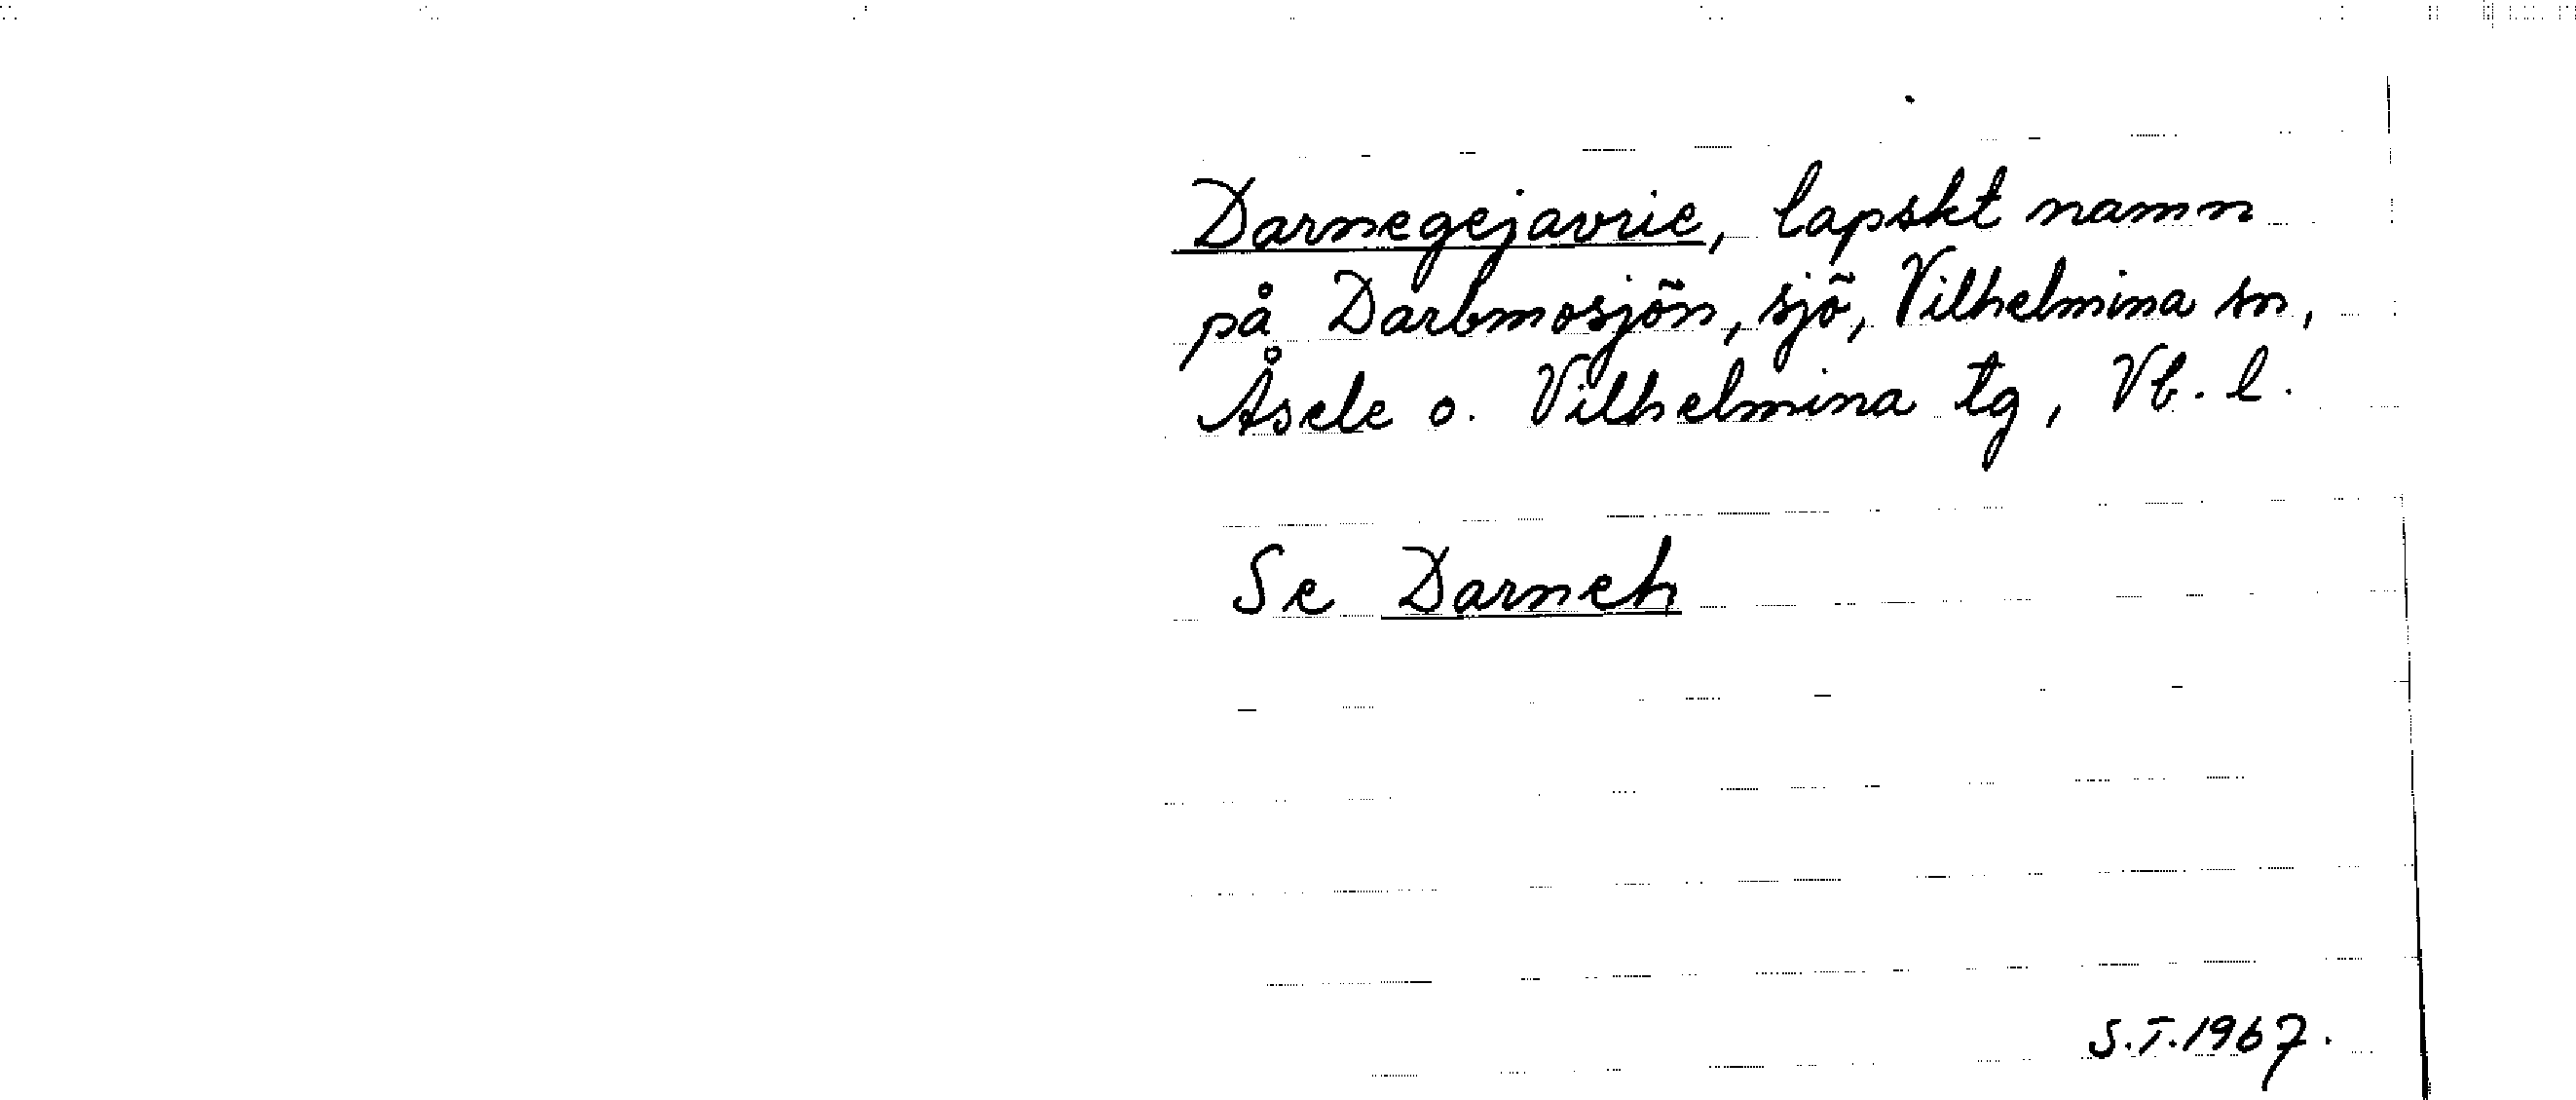 Darnegejavrie, lapskt namn
på Darbmosjön, sjö, Vilhelmina sn,
Åsele o. Vilhelmina tg, Vb. l.
Se Darneh
S.T.1967.